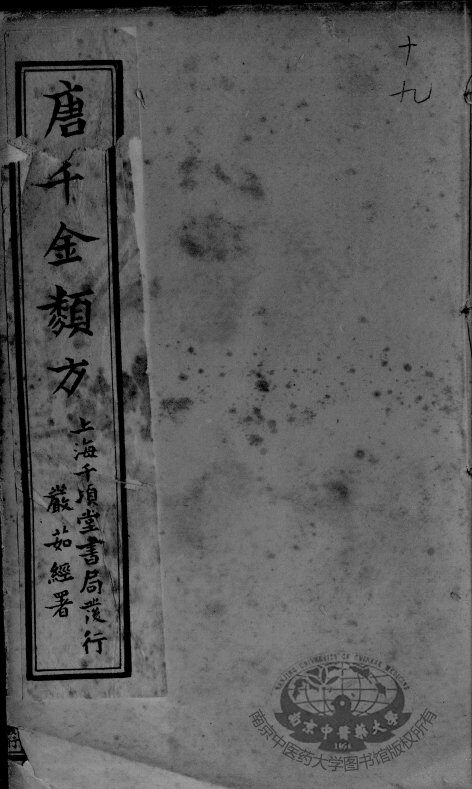 唐千金類方
上海千頃堂書局發行
嚴茹經署
十
九
NANJING UNIVERSITY OF CHINESE MEDICINE
南京中醫藥大學
1954
南京中医药大学图书馆版权所有